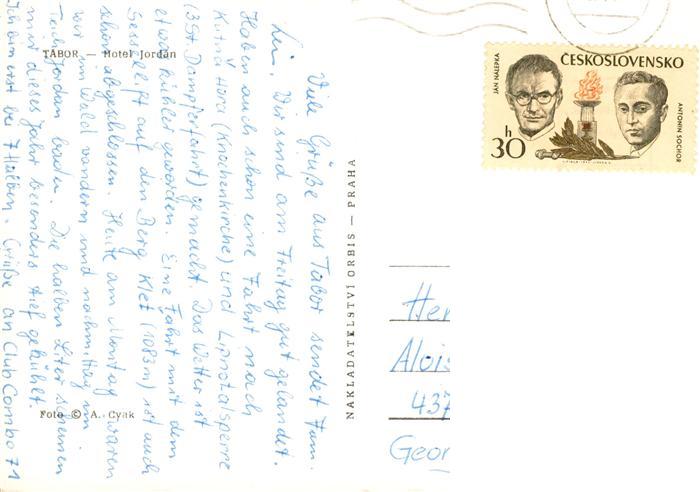 TÁBOR — Hotel Jordán
Viele Grüße aus Tabor sendet Fam.
Wir sind am Freitag gut gelandet.
Haben auch schon eine Fahrt nach
Kutná Hora (Knochenkirche) und Lipnotalsperre
(3 St. Dampferfahrt) gemacht. Das Wetter ist
etwas kühler geworden. Eine Fahrt mit dem
Sessellift auf den Berg Kleť (1083m) ist auch
schon abgeschlossen. Heute am Montag waren
wir im Wald wandern und nachmittag im
Teich Jordan baden. Die halben Liter scheinen
mir dieses Jahr besonders tief gekühlt.
Ich bin erst bei 7 Halben. Grüße an Club Combo 71
Foto © A. Cvak
NAKLADATELSTVÍ ORBIS — PRAHA
ČESKOSLOVENSKO
JÁN NÁLEPKA
ANTONÍN SOCHOR
h
30
Her
Alois
437
Geor